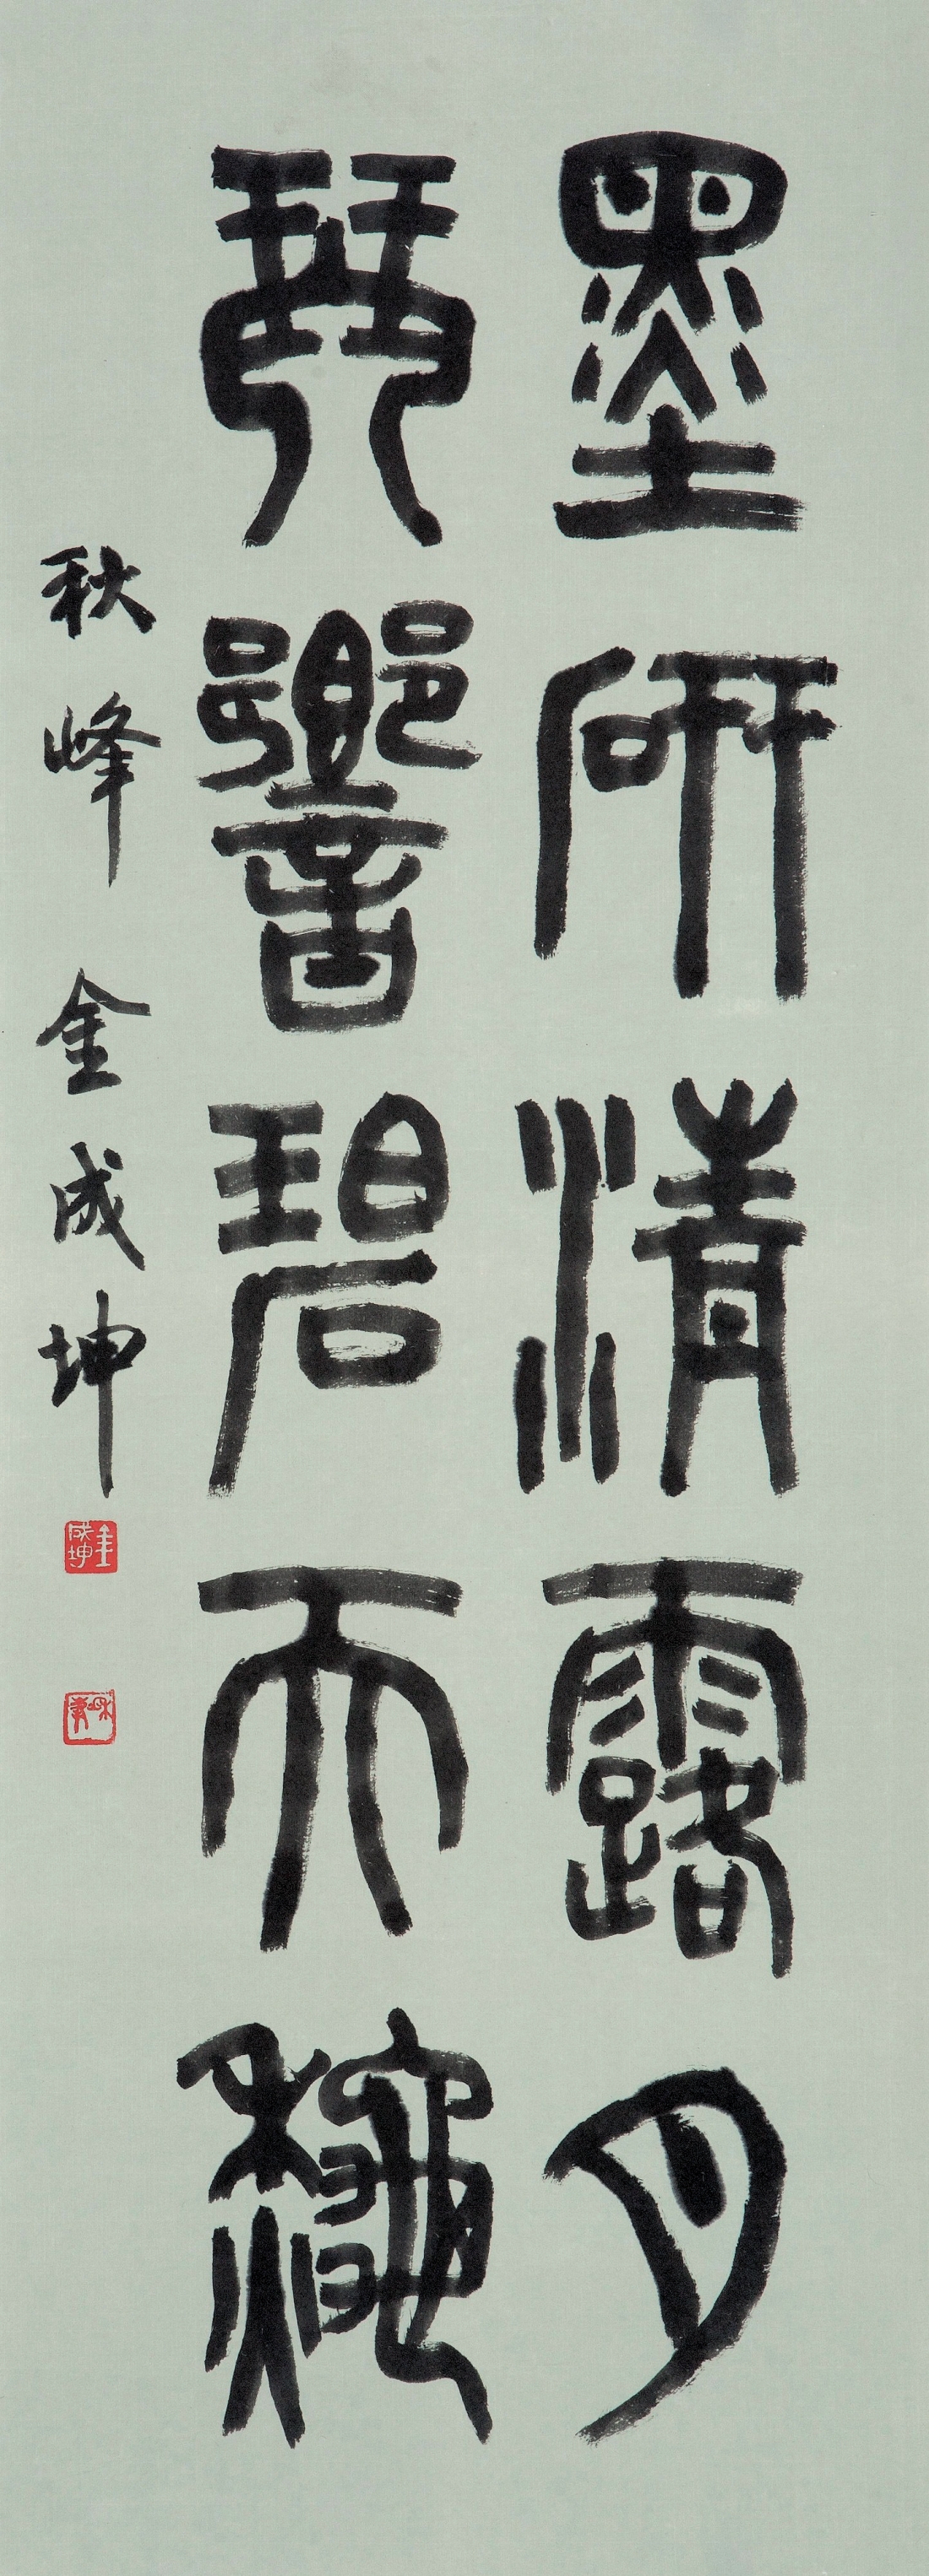 墨研清露月
琴響碧天秋
秋峰 金成坤
金成坤